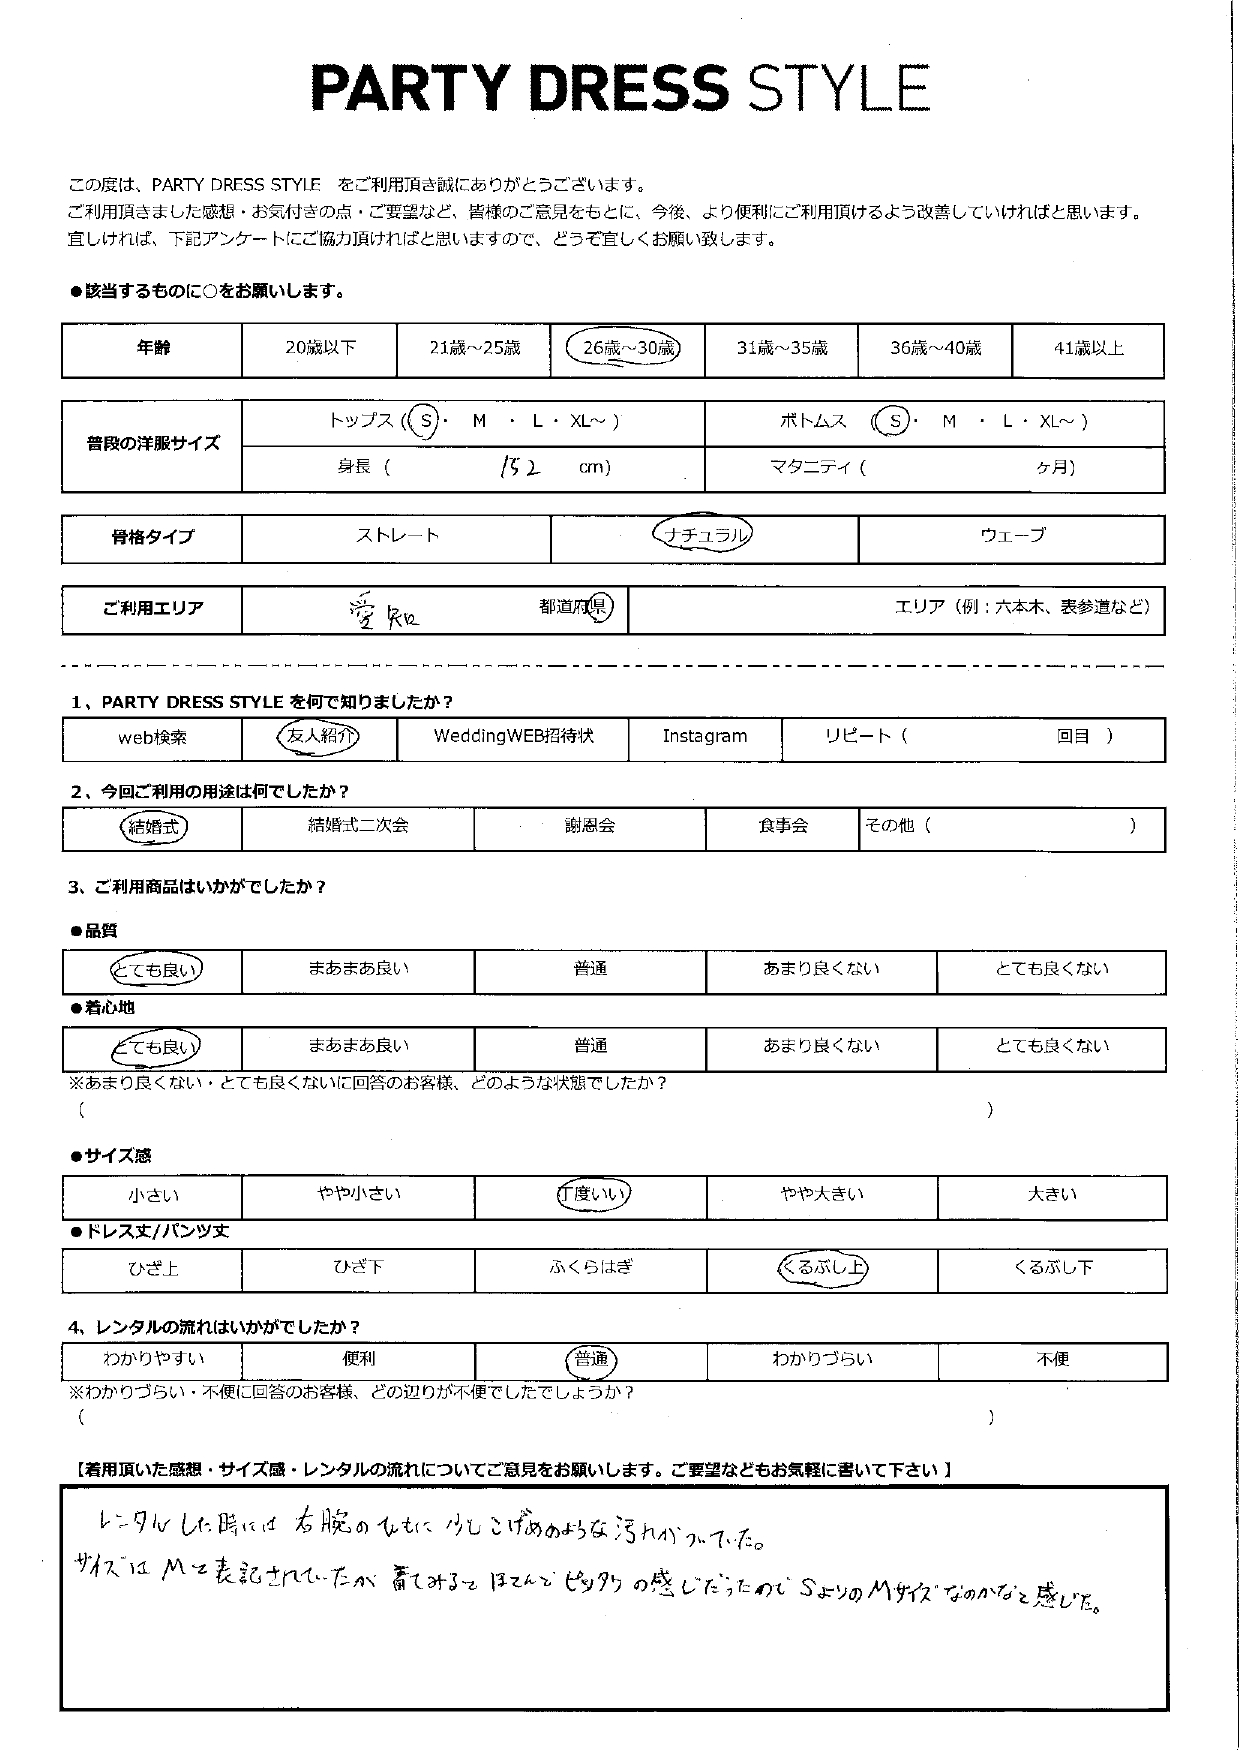 PARTY DRESS STYLE
この度は、PARTY DRESS STYLE をご利用頂き誠にありがとうございます。
ご利用頂きました感想・お気付きの点・ご要望など、皆様のご意見をもとに、今後、より便利にご利用頂けるよう改善していければと思います。
宜しければ、下記アンケートにご協力頂ければと思いますので、どうぞ宜しくお願い致します。
●該当するものに○をお願いします。
年齢 20歳以下 21歳～25歳 26歳～30歳 31歳～35歳 36歳～40歳 41歳以上
普段の洋服サイズ トップス（S・ M ・ L・XL～） ボトムス （S・ M ・ L・XL～）
身長（ 152 cm） マタニティ（ ヶ月）
骨格タイプ ストレート ナチュラル ウェーブ
ご利用エリア 愛知 都道府県 エリア（例：六本木、表参道など）
1、PARTY DRESS STYLE を何で知りましたか？
web検索 友人紹介 WeddingWEB招待状 Instagram リピート（ 回目 ）
2、今回ご利用の用途は何でしたか？
結婚式 結婚式二次会 謝恩会 食事会 その他（ ）
3、ご利用商品はいかがでしたか？
●品質
とても良い まあまあ良い 普通 あまり良くない とても良くない
●着心地
とても良い まあまあ良い 普通 あまり良くない とても良くない
※あまり良くない・とても良くないに回答のお客様、どのような状態でしたか？
（ ）
●サイズ感
小さい やや小さい 丁度いい やや大きい 大きい
●ドレス丈/パンツ丈
ひざ上 ひざ下 ふくらはぎ くるぶし上 くるぶし下
4、レンタルの流れはいかがでしたか？
わかりやすい 便利 普通 わかりづらい 不便
※わかりづらい・不便に回答のお客様、どの辺りが不便でしたでしょうか？
（ ）
【着用頂いた感想・サイズ感・レンタルの流れについてご意見をお願いします。ご要望などもお気軽に書いて下さい】
レンタルした時には右腕のひもに少しこげめのような汚れがついていた。
サイズはMと表記されていたが着てみるとほとんどピッタリの感じだったのでSよりのMサイズなのかなと感じた。